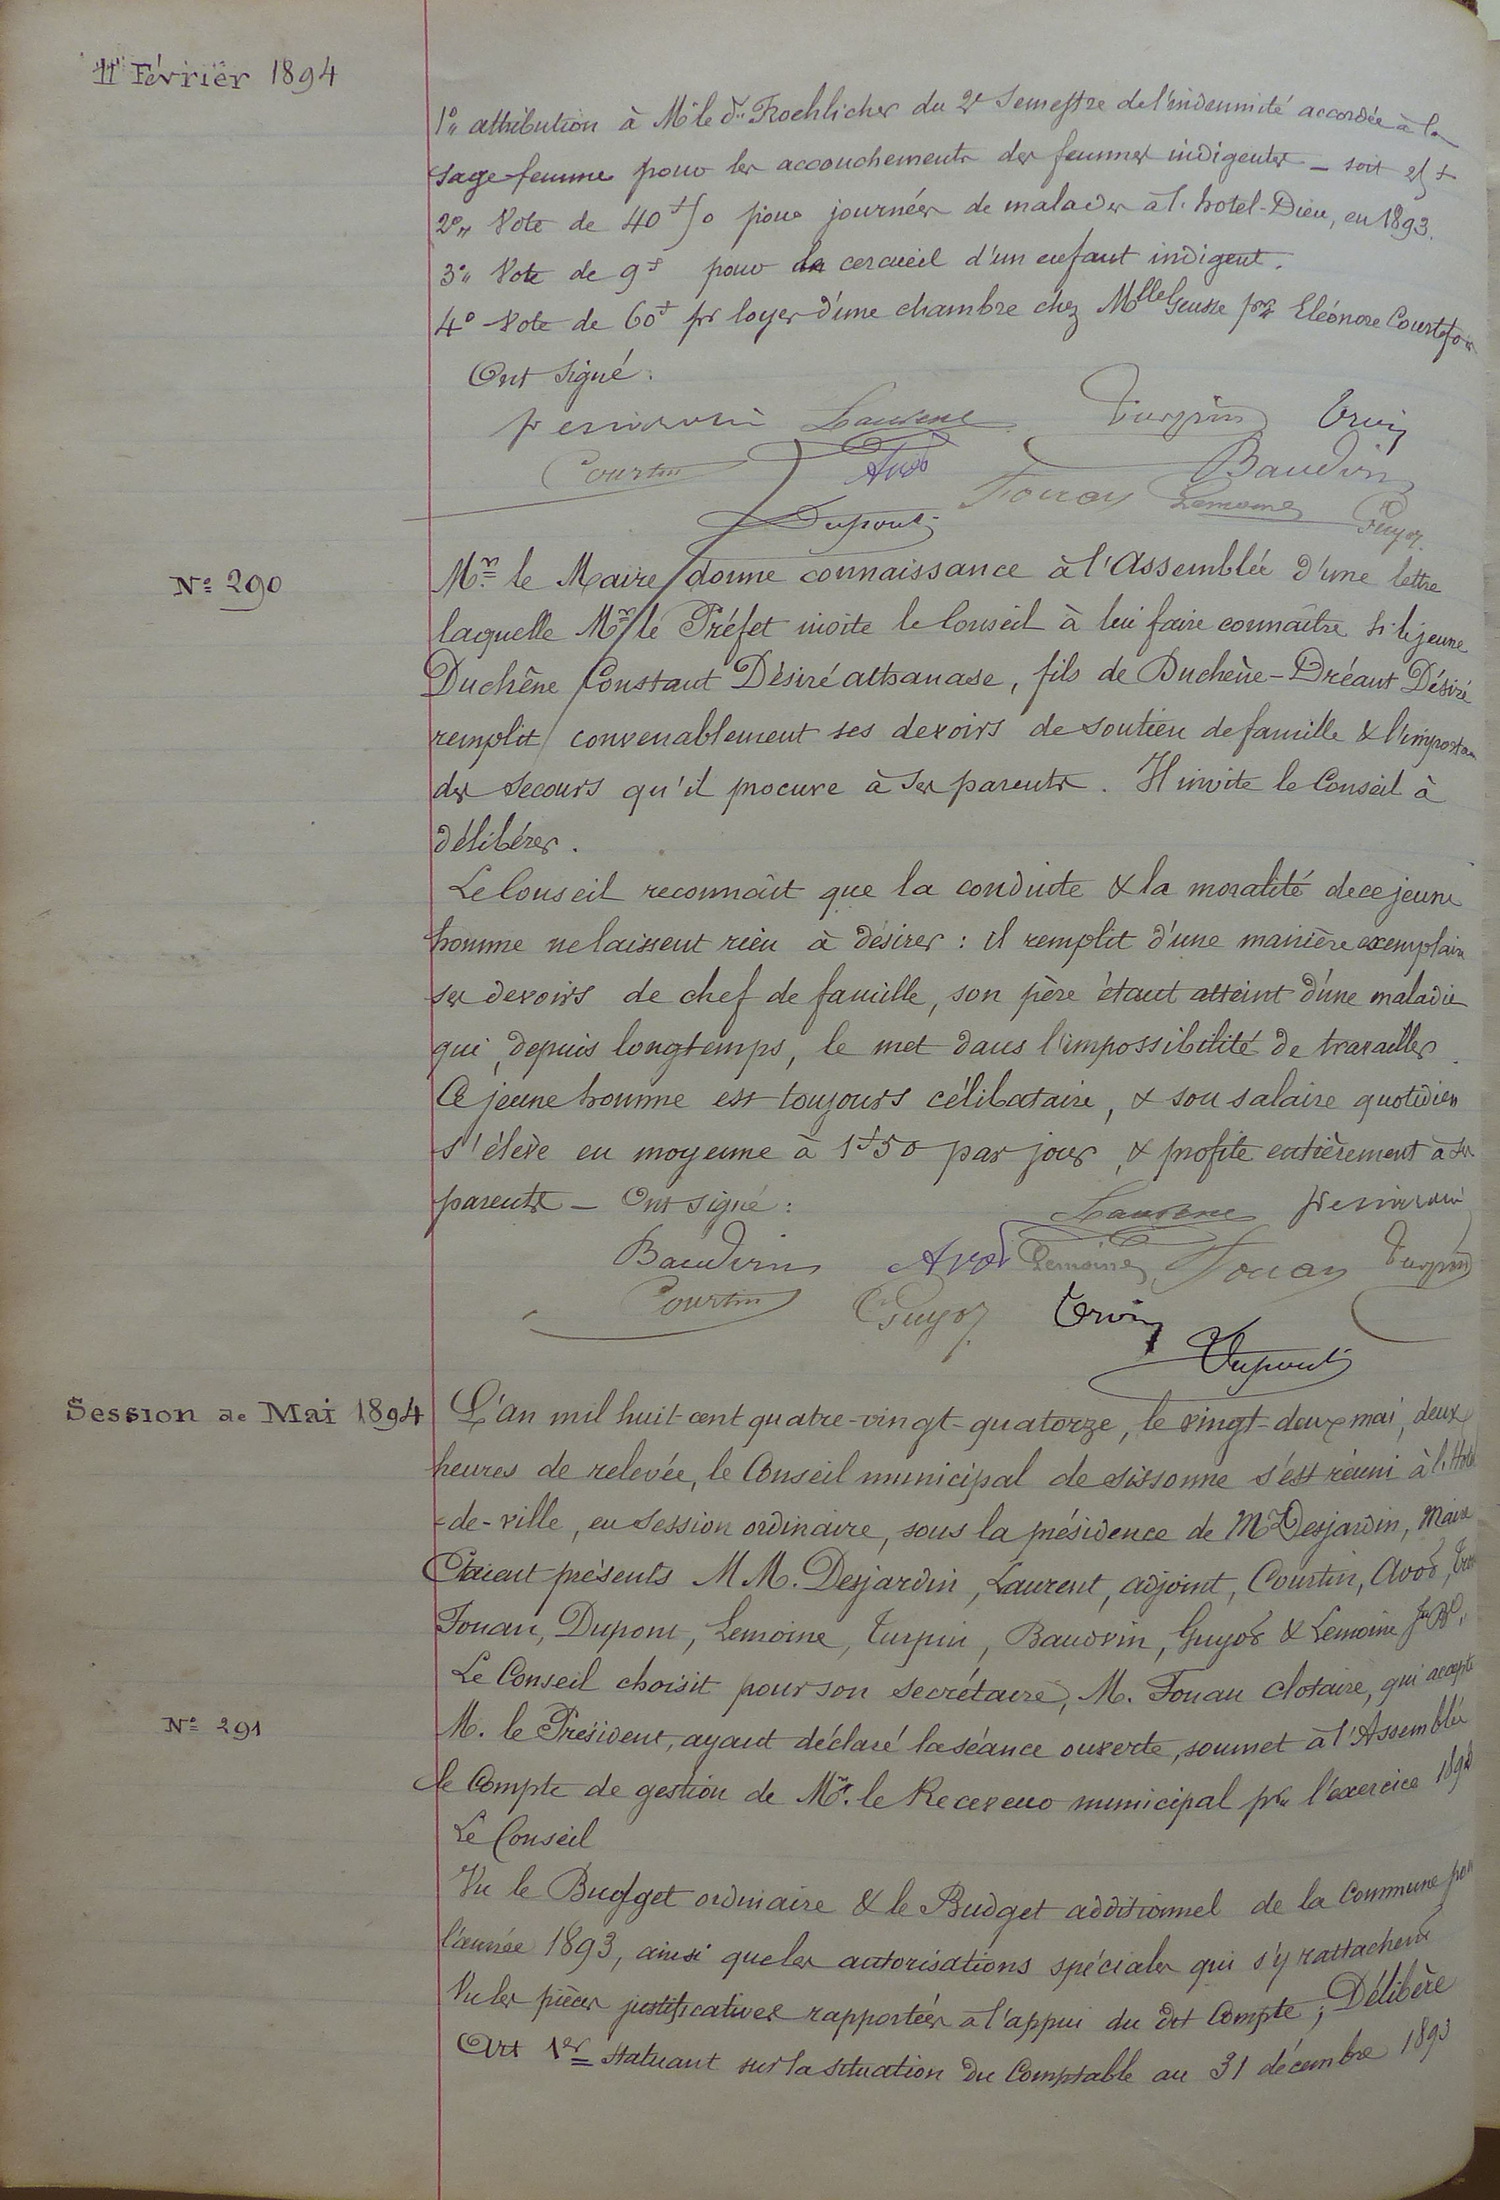 11 Février 1894
1° attribution à M. le dr Froehlicher du 2e Semestre de l'indemnité accordée à la
sage-femme pour les accouchements des femmes indigentes - soit 25 f
2° Vote de 40 f pour journées de malades à l'hotel-Dieu, en 1893.
3° Vote de 9 f pour cercueil d'un enfant indigent.
4° Vote de 60 f pr loyer d'une chambre chez Mlle pr Eléonore
Ont Signé :
Laurent Turpin
Courtin Avod Baudvin
Fouan Lemoine Guyot
Dupont
N° 290
Mr le Maire donne connaissance à l'Assemblée d'une lettre
laquelle Mr le Préfet invite le Conseil à lui faire connaître si le jeune
Duchêne Constant Désiré athanase, fils de Duchêne-Dréant Désiré
remplit convenablement ses devoirs de soutien de famille & l'importan
des secours qu'il procure à ses parents. Il invite le Conseil à
délibérer.
Le Conseil reconnaît que la conduite & la moralité de ce jeune
homme ne laissent rien à désirer : il remplit d'une manière exemplaire
ses devoirs de chef de famille, son père étant atteint d'une maladie
qui, depuis longtemps, le met dans l'impossibilité de travailler.
Ce jeune homme est toujours célibataire, & son salaire quotidien
s'élève en moyenne à 1 f 50 par jour, & profite entièrement à ses
parents - Ont signé :
Laurent
Baudvin Avod Lemoine Fouan Turpin
Courtin Guyot
Dupont
Session de Mai 1894
L'an mil huit cent quatre-vingt-quatorze, le vingt-deux mai, deux
heures de relevée, le Conseil municipal de Sissonne s'est réuni à l'Hotel
-de-ville, en session ordinaire, sous la présidence de Mr Desjardin, Maire
Etaient présents MM. Desjardin, Laurent, adjoint, Courtin, Avod,
Fouan, Dupont, Lemoine, Turpin, Baudvin, Guyot & Lemoine
Le Conseil choisit pour son secrétaire, M. Fouan Clotaire, qui accepte
N° 291
M. le Président, ayant déclaré la séance ouverte, soumet à l'Assemblée
le Compte de gestion de Mr. le Receveur municipal pr l'exercice
Le Conseil
Vu le Budget ordinaire & le Budget additionnel de la Commune pour
l'année 1893, ainsi que les autorisations spéciales qui s'y rattachent
Vu les pièces justificatives rapportées à l'appui du dit Compte ; Délibère
Art 1er Statuant sur la situation du Comptable au 31 décembre 1893